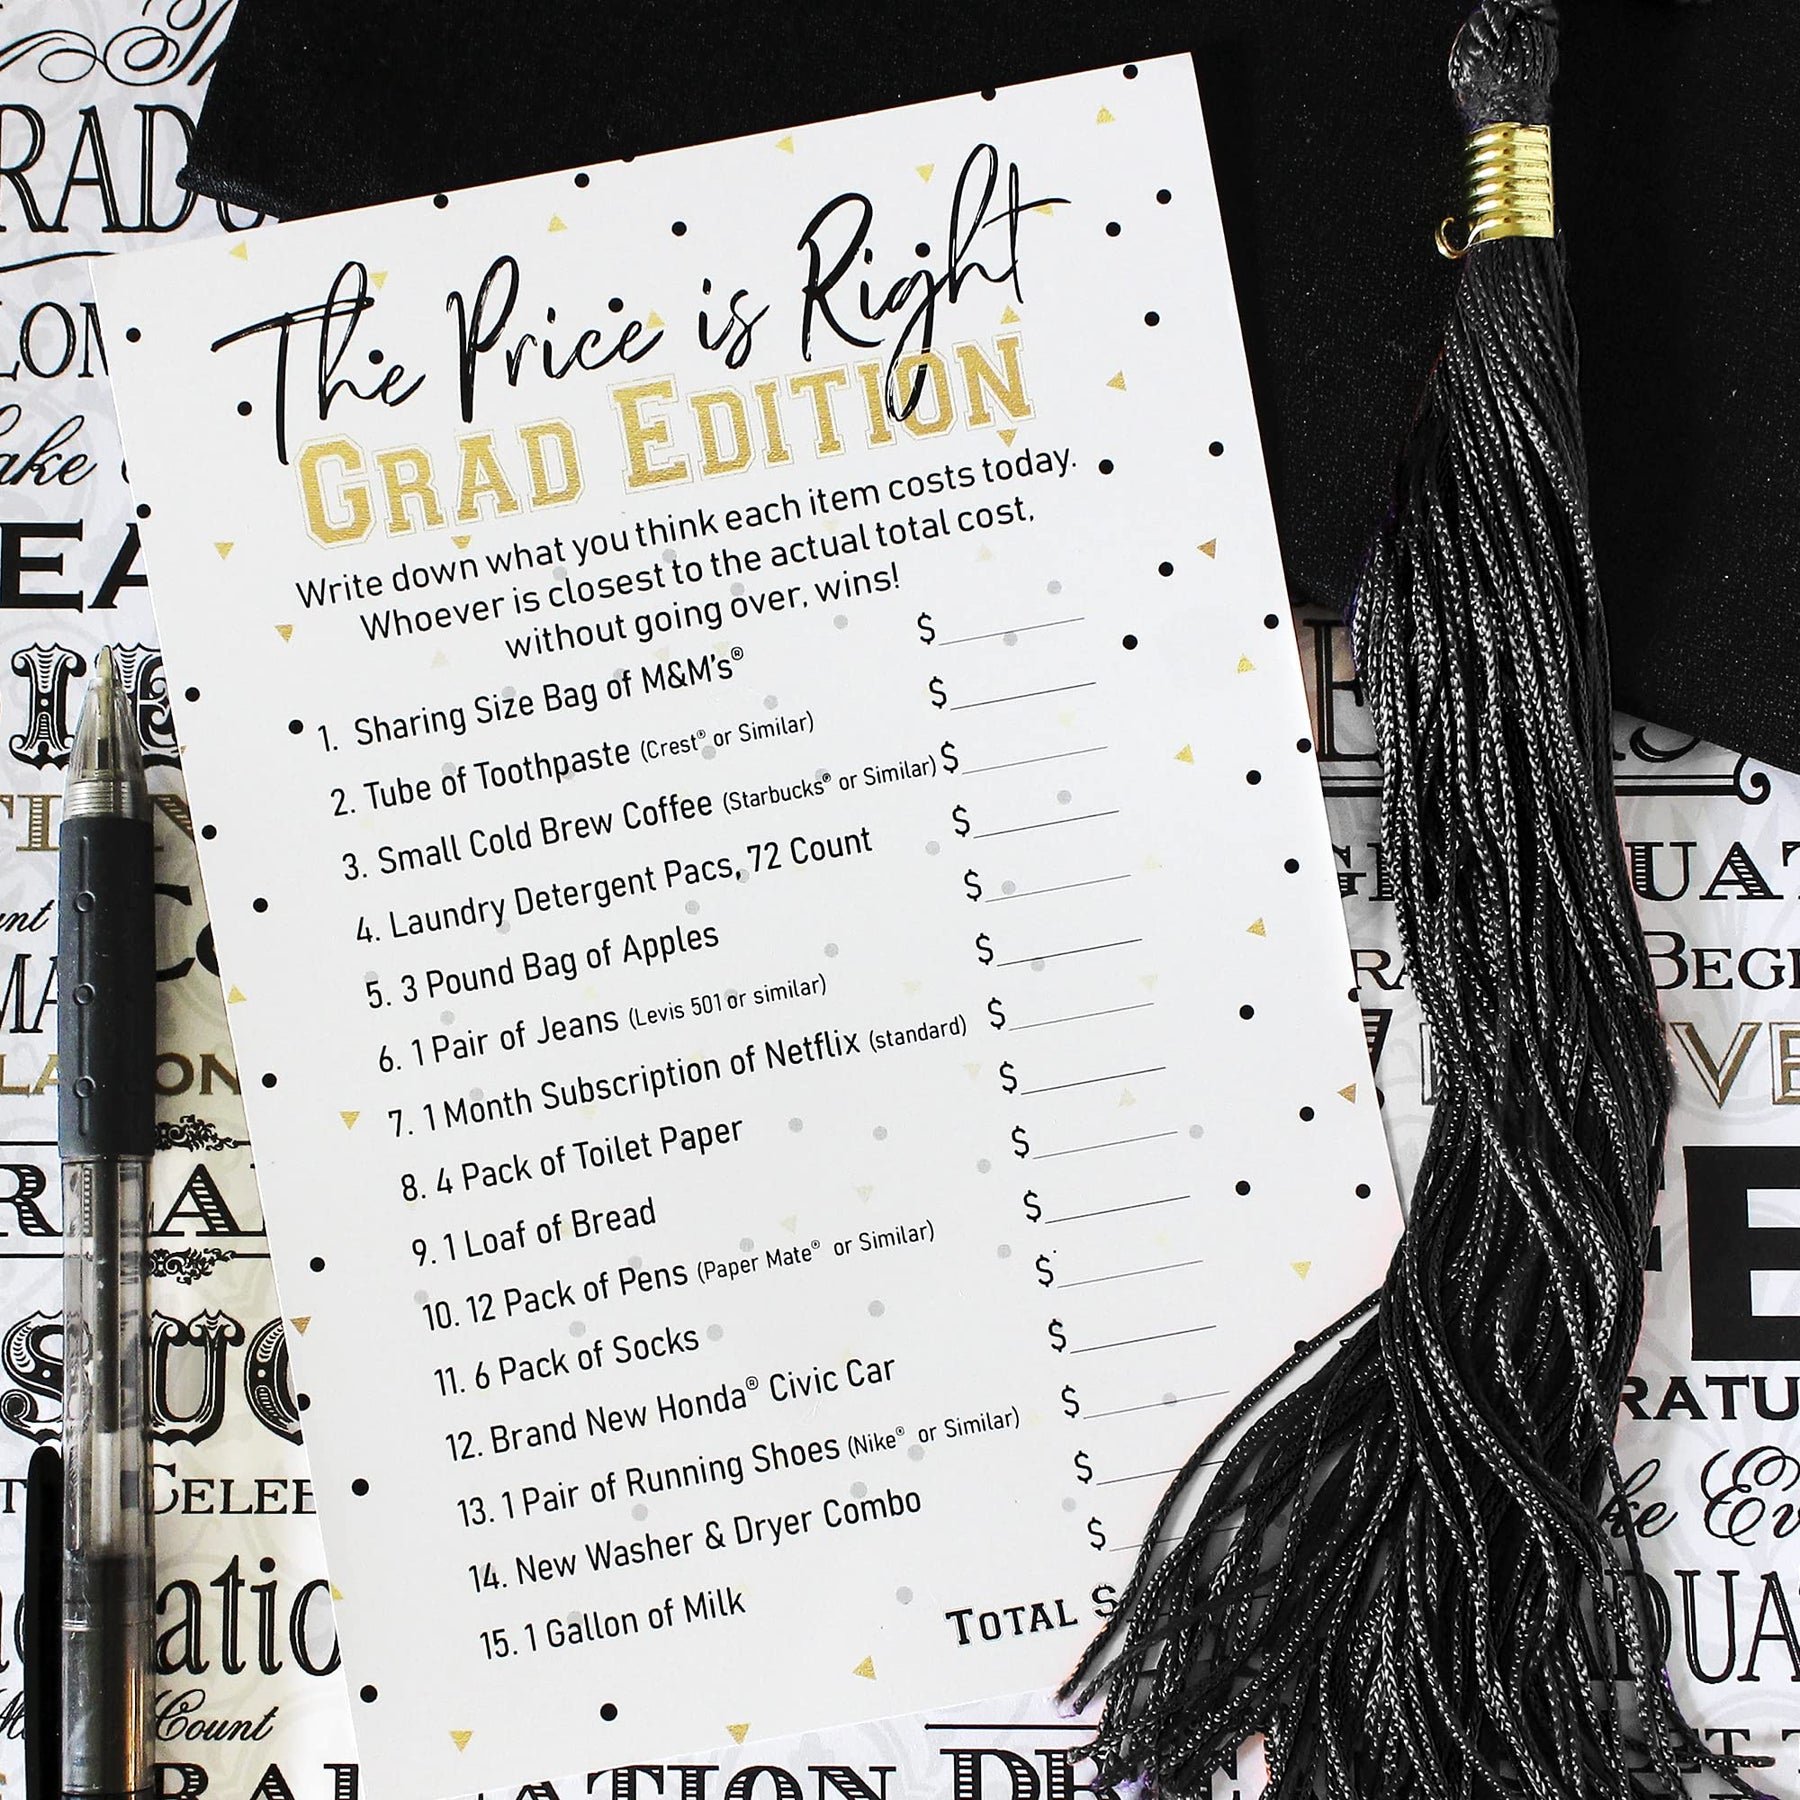 The Price is Right
GRAD EDITION
Write down what you think each item costs today.
Whoever is closest to the actual total cost,
without going over, wins!
1. Sharing Size Bag of M&M's® $
2. Tube of Toothpaste (Crest® or Similar) $
3. Small Cold Brew Coffee (Starbucks® or Similar) $
4. Laundry Detergent Pacs, 72 Count $
5. 3 Pound Bag of Apples $
6. 1 Pair of Jeans (Levis 501 or similar) $
7. 1 Month Subscription of Netflix (standard) $
8. 4 Pack of Toilet Paper $
9. 1 Loaf of Bread $
10. 12 Pack of Pens (Paper Mate® or Similar) $
11. 6 Pack of Socks $
12. Brand New Honda® Civic Car $
13. 1 Pair of Running Shoes (Nike® or Similar) $
14. New Washer & Dryer Combo $
15. 1 Gallon of Milk $
TOTAL $
Count